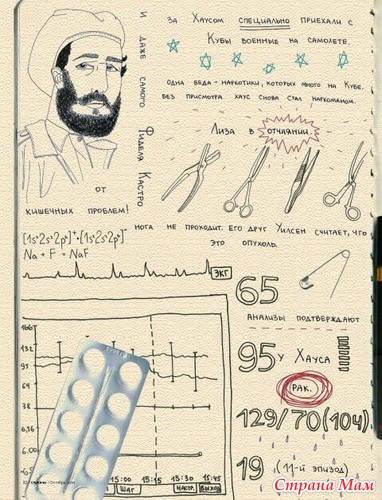 За Хаусом специально приехали с
Кубы военные на самолете.
одна беда - наркотики, которых много на Кубе.
Без присмотра Хаус снова стал наркоманом.
Лиза в отчаянии.
и даже самого Фиделя Кастро
от
кишечных проблем!
нога не проходит. Его друг Уилсен считает, что
это опухоль.
[1s²2s²2p⁶]⁺·[1s²2s²2p⁶]⁻
Na + F = NaF
ЭКГ
65
анализы подтверждают
95 у Хауса
рак.
129/70(104)
19 (11-й эпизод)
166
132
97
69
1,38
6,36
0,00
-6,0
15:00 15:15 15:30 15:45
ШАГ НАСТР. ВЫХОД
Страна Мам